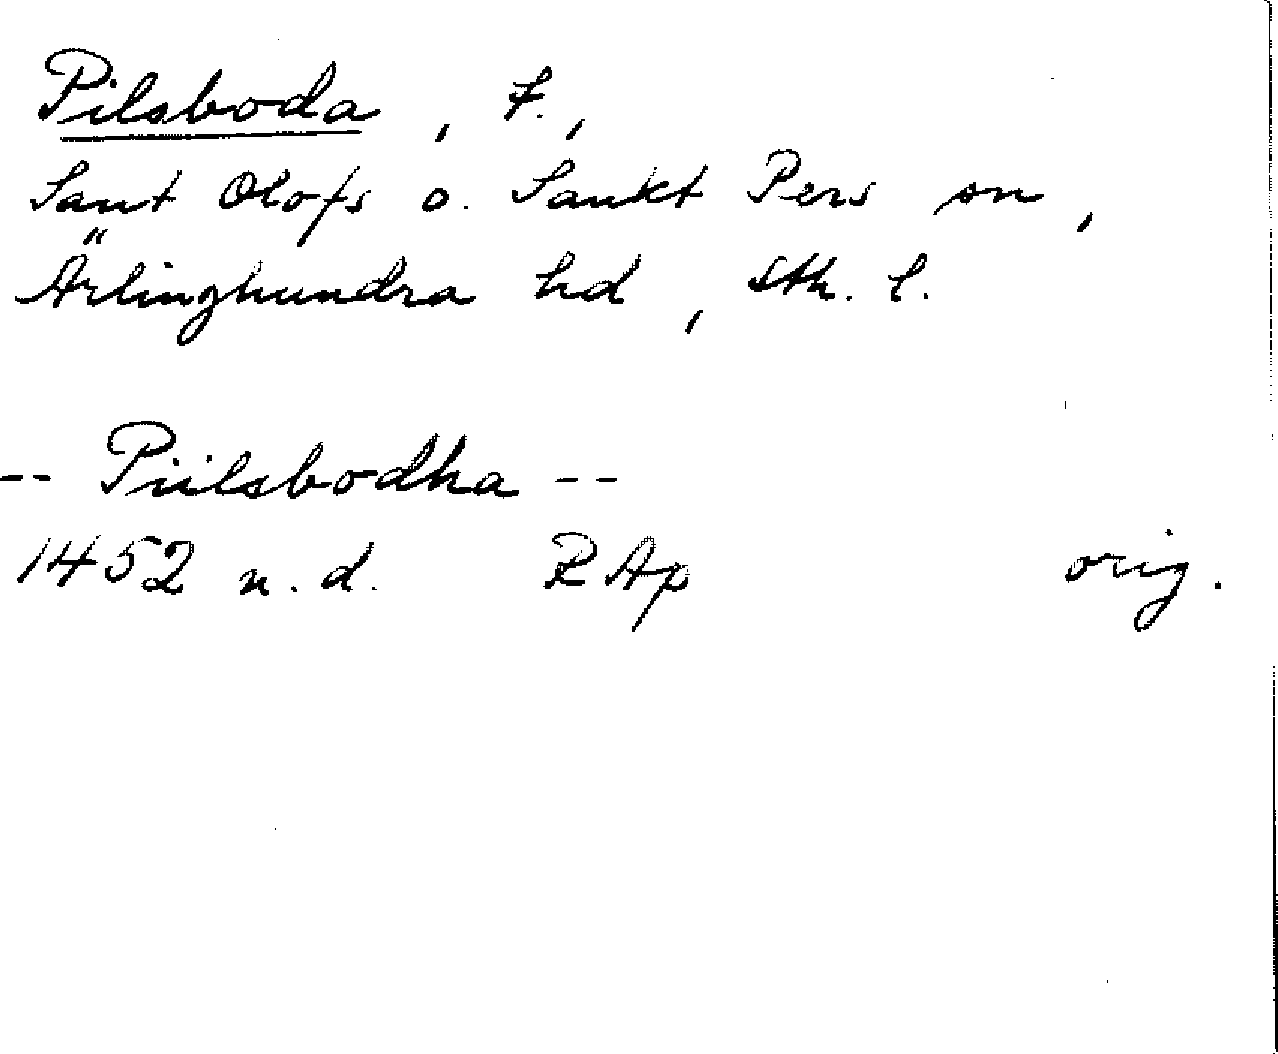 Pilsboda, f.,
Sant Olofs o. Sankt Pers sn,
Ärlinghundra hd, Sth. l.
-- Piilsbodha --
1452 n.d. RAp orig.